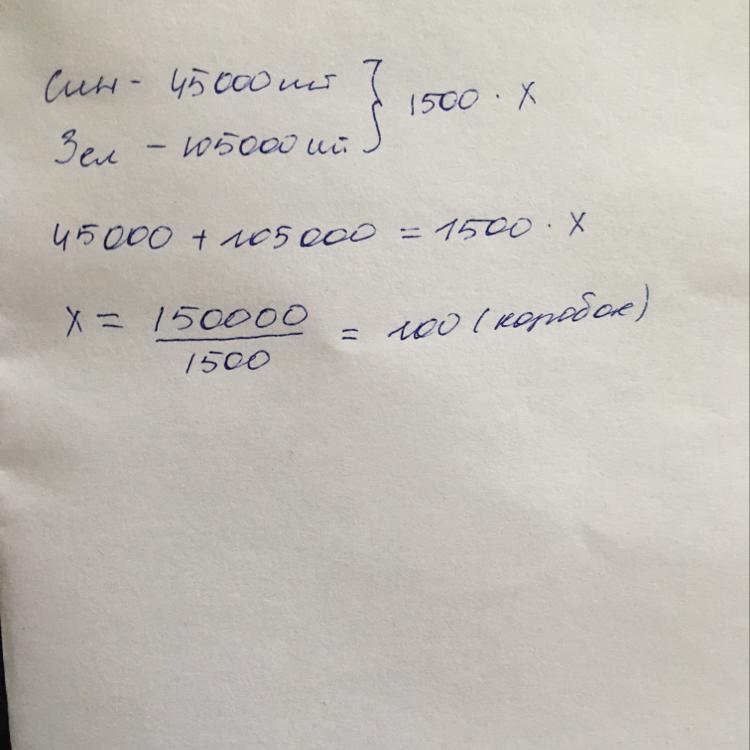 Син - 45000 шт } 1500 · x
Зел - 105000 шт.
45000 + 105000 = 1500 · x
x = 150000 / 1500 = 100 (коробок)